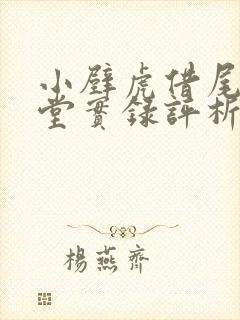 小壁虎借尾
堂實錄評析
楊燕齊